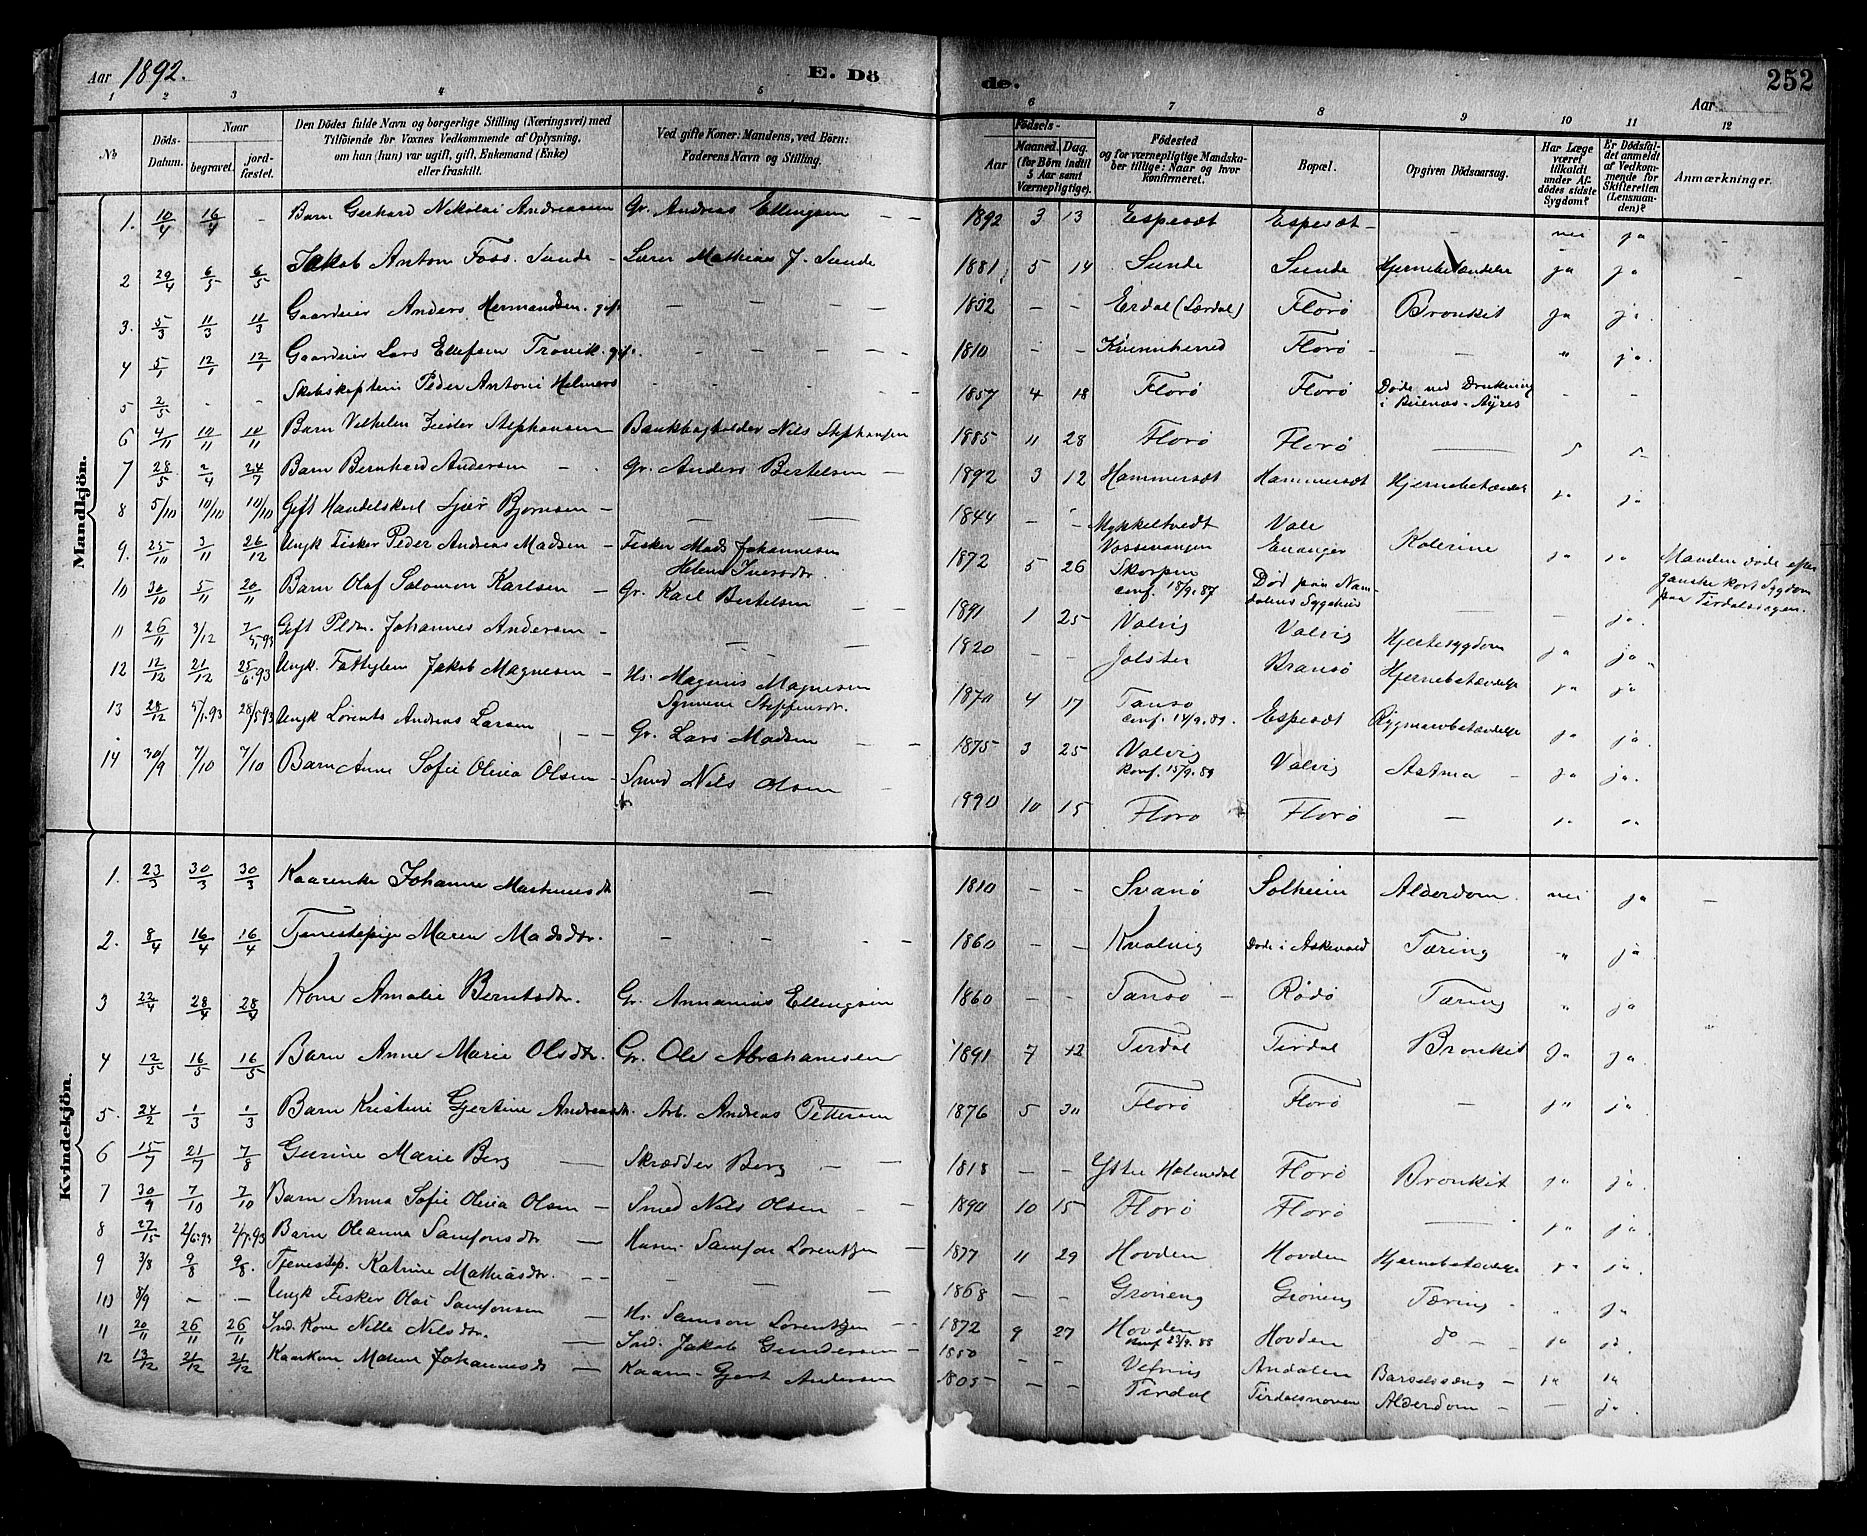 Aar 1892. E. Dö de. Aar 252
1 2 3 4 5 6 7 8 9 10 11 12
No Döds-Datum. Naar begravet. jordfæstet. Den Dödes fulde Navn og borgerlige Stilling (Næringsvei) med Tilföiende for Voxnes Vedkommende af Oplysning, om han (hun) var ugift, gift, Enkemand (Enke) eller fraskilt. Ved gifte Koner: Mandens, ved Börn: Faderens Navn og Stilling. Födsels- Aar Maaned. Dag. (for Börn indtil 5 Aar samt Værnepligtige). Födested og for værnepligtige Mandskaber tillige: Naar og hvor konfirmeret. Bopæl. Opgiven Dödsaarsag. Har Læge været tilkaldt under Afdödes sidste Sygdom? Er Dödsfaldet anmeldt af Vedkommende for Skifteretten (Lensmanden)? Anmærkninger.
Mandkjön.
1. 10/4 16/4 - Barn Gerhard Nikolai Andreassen Gr. Andreas Ellingsen - - 1892 3 13 Espesæt Espesæt - - nei ja -
2 29/4 6/5 6/5 Jakob Anton Foss. Sunde - Lærer Mathias J. Sunde 1881 5 14 Sunde Sunde Hjernebetændelse ja ja -
3. 5/3 11/3 11/3 Gaardeier Anders Hermandsen. gift - - - 1832 - - Erdal (Lærdal) Florø Bronkit ja ja.
4 5/1 12/1 12/1 Gaardeier Lars Ellefsen Trovik. gift. - - - - 1810 - - Kvinnherred Florø - - " ja.
5 2/5 - - Skibskaptein Peder Antoni Helmers - - - - 1857 4 18 Florø Florø Døde ved Drukning i Buenos-Ayres - -
6 4/11 10/11 10/11 Barn Vilhelm Stephansen Bankbogholder Nils Stephansen 1885 11 28 Florø Florø
7 28/5 2/4 24/7 Barn Bernhard Andersen - - Gr. Anders Bertelsen - 1892 3 12 Hammersæt Hammersæt Hjernebetændelse ja ja
8 5/10 10/10 10/10 Gift Handelskarl Sjur Bjørnsen - 1844 - - Mykkeltvedt Vossevangen Vale Evanger Kolerine ja ja Manden døde efter ganske kort Sygdom paa Tirdalsvagen.
9. 25/10 3/11 26/12 Ungk Fisker Peder Andreas Madsen - Fisker Mads Johannesen Helene Iversdtr. 1872 5 26 Skorpen conf. 18/9.87 Død paa Namdalens Sygehus
10 30/10 5/11 20/11 Barn Olaf Salomon Karlsen - Gr. Karl Bertelsen - - 1891 1 25 Valvig Valvig - ja.
11 26/11 3/12 7/5 93 Gift Pldm. Johannes Andersen - - 1820 - - Jølster Bransø Hjertesygdom ja ja
12 12/12 21/12 25/6.93 Ungk. Fattiglem Jakob Magnesen - Hs. Magnus Magnesen Synneve Steffensdtr. 1870 4 17 Tansø conf. 14/9.89. Espesæt Hjernebetændelse ja ja
13 28/12 5/1.93 28/5 93 Ungk Lorents Andreas Larsen - - Gr. Lars Madsen - - 1875 3 25 Valvig konf. 15/9.89 Valvig Rygmarvbetændelse ja ja.
14 30/9 7/10 7/10 Barn Anne Sofie Olivia Olsen - Smed Nils Olsen - 1890 10 15 Florø Florø Astma - ja ja.
Kvindekjön.
1. 23/3 30/3 30/3 Kaarenke Johanne Martinusdtr - 1810 - - Svanø Solheim Alderdom. nei ja -
2. 8/4 16/4 16/4 Tjenestepige Maren Madsdtr. - - - - 1860 - - Kvalvig Døde i Askevold Tæring " ja
3 22/4 28/4 28/4 Kone Amalie Berntsdtr. Gr. Annanias Ellingsen 1860 - - Tansø - Rødø Tæring " ja
4 12/5 16/5 16/5 Barn Anne Marie Olsdtr. Gr. Ole Abrahamsen 1891 7 12 Tirdal Tirdal Bronkit Ja ja "
5. 24/2 1/3 1/3 Barn Kristine Gjertine Andreasdtr. Arb. Andreas Pettersen 1876 5 30 Florø Florø - ja ja.
6 15/7 21/7 7/8 Gurine Marie Berg - Skrædder Berg - - 1818 - - Ytre Holmedal Florø Bronkit ja ja.
7 30/9 7/10 7/10 Barn Anna Sofie Olivia Olsen - Smed Nils Olsen - - 1890 10 15 Florø Florø - ja ja
8 27/15 2/6.93 2/7.93 Barn Oleanna Samsonsdtr - Husm. Samson Lorentzen - 1877 11 29 Hovden Hovden Hjernebetændelse ja ja.
9 3/8 9/8 9/8. Tjenestep. Katrine Mathiasdtr. - - - - 1868 - - Grøneng Grøneng Tæring - " ja
10 8/9 - - Ungk Fisker Olai Samsonsen - Hs. Samson Lorentzen - 1872 9 27 Hovden konf 23/9.88 Hovden do - ja ja
11 20/11 26/11 26/11 Ind. Kone Nille Nilsdtr. - Ind. Jakob Gundersen - 1850 - - Vefring Andalen Barselseng - ja ja
12 13/12 21/12 21/12 Kaarkone Malene Johannesdtr - Kaarm. Gjert Andersen 1805 - - Tirdal Tirdalsnoven Alderdom - - ja.